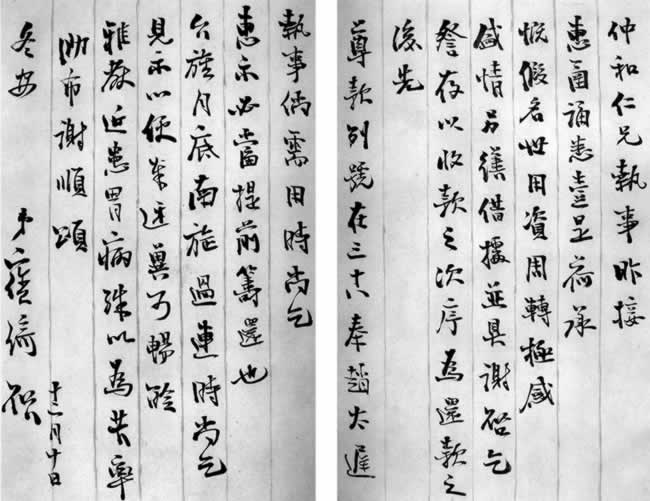 仲和仁兄執事昨接
惠函誦悉壹是荷承
慨假名世用資周轉極感
盛情另繕借據並具謝啓乞
詧存以收款之次序為還款之
後先
尊款列號在三十八奉趙太遲
執事倘需用時尚乞
惠示必當提前籌還也
台旌月底南旋過連時尚乞
見示以便奉迓冀可暢聆
雅教近患胃病殊以為苦率
泐布謝順頌
冬安 弟
十二月十日